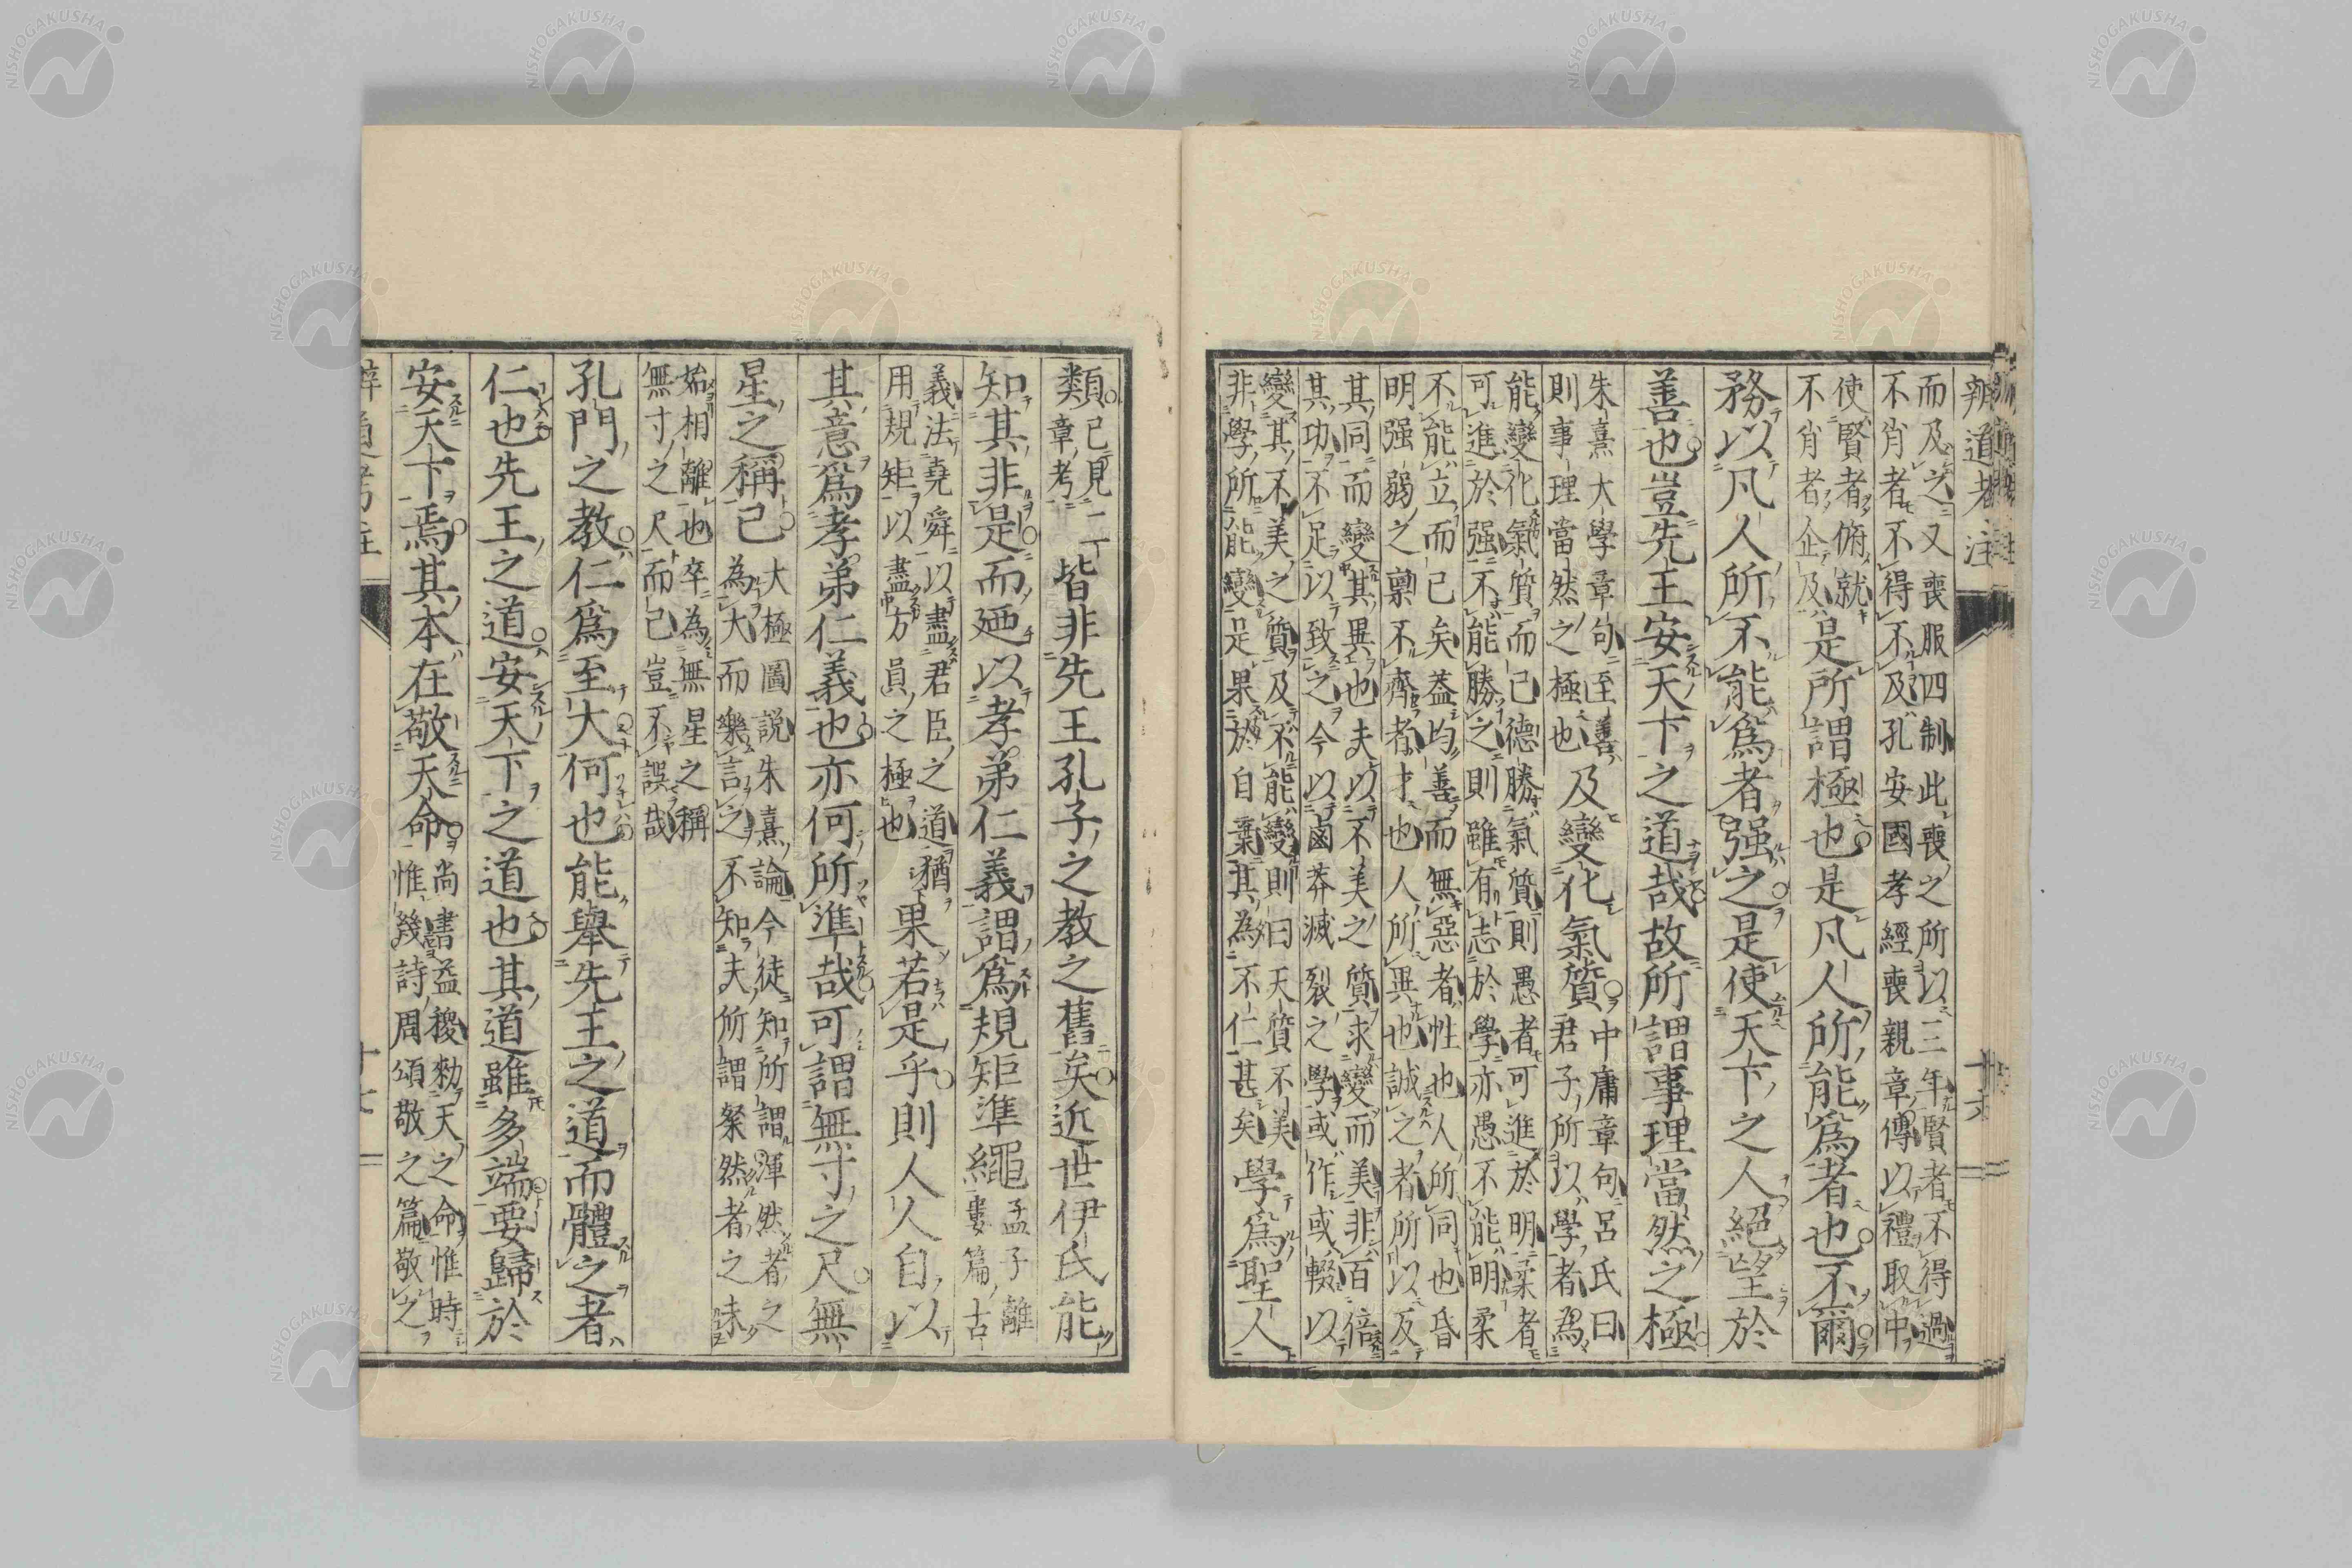 辨道考注
而及之又喪服四制此喪之所以三年賢者不得過
不肖者不得不及孔安國孝經喪親章傳以禮取中
使賢者俯就
不肖者企及
是所謂極也是凡人所能爲者也不爾
務以凡人所不能爲者强之是使天下之人絕望於
善也豈先王安天下之道哉故所謂事理當然之極
朱熹大學章句至善
則事理當然之極也
及變化氣質
中庸章句呂氏曰
君子所以學者爲
能變化氣質而已德勝氣質則愚者可進於明柔者
可進於强不能勝之則雖有志於學亦愚不能明柔
不能立而已矣蓋均善而無惡者性也人所同也昏
明强弱之稟不齊者才也人所異也誠之者所以反
其同而變其異也夫以不美之質求變而美非百倍
其功不足以致之今以鹵莽滅裂之學或作或輟以
變其不美之質及不能變則曰天質不美
非學所能變是果於自棄其為不仁甚矣
學爲聖人
十六
類
已見二
章考
皆非先王孔子之教之舊矣近世伊氏能
知其非是而廼以孝弟仁義謂爲規矩準繩
孟子離
婁篇古
義法堯舜以盡君臣之道猶
用規矩以盡方員之極也
果若是乎則人人自以
其意爲孝弟仁義也亦何所準哉可謂無寸之尺無
星之稱已
大極圖説朱熹論今徒知所謂渾然者之
為大而樂言之不知夫所謂粲然者之未
始相離也卒為無星之稱
無寸之尺而已豈不誤哉
孔門之教仁爲至大何也能舉先王之道而體之者
仁也先王之道安天下之道也其道雖多端要歸於
安天下焉其本在敬天命
尚書益稷勑天之命惟時
惟幾詩周頌敬之篇敬之